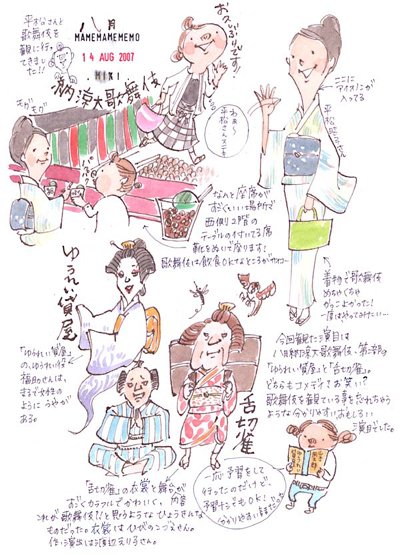 平松さんと
歌舞伎を
観に行って
きました!!
八月
MAMEMAMEMEMO
14 AUG 2007
MIKI
納涼大歌舞伎
お久しぶりです!
わぁ〜
平松さんステキ
ここに
アイスノンが
入ってる
なんと座席が
すごくいい場所で
西側2階の
テーブルの付いてる席
靴をぬいで座ります!
歌舞伎は飲食OKなところがいいわー
着物で歌舞伎
めちゃくちゃ
かっこよかった!
一度はやってみたい…
ゆうれい貸屋
「ゆうれい貸屋」
の、ゆうれい役
福助さんは、
まるで女性の
ように
ある。
舌切雀
今回観た演目は
八月納涼大歌舞伎・第二部の
「ゆうれい貸屋」と「舌切雀」。
どちらもコメディでお笑い?
歌舞伎を観ている事を忘れちゃう
ような分かりやすいおもしろい
演目でした。
「舌切雀」の衣裳と舞台が
すごくカラフルでかわいく、
これが歌舞伎?と思うような
ものだった。衣裳はひびのこづえさん。
作・演出は渡辺えり子さん。
一応予習をして
行ったのだけど、
予習ナシでもOK!
分かりやすい